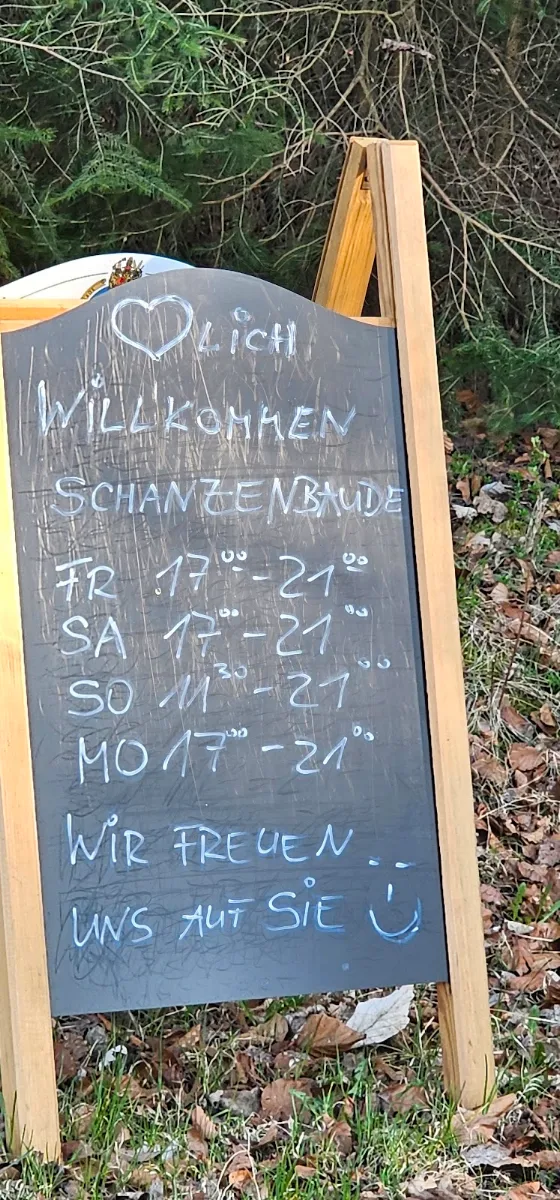 ♡LICH
WILLKOMMEN
SCHANZENBAUDE
FR 17⁰⁰-21⁰⁰
SA 17⁰⁰-21⁰⁰
SO 11³⁰-21⁰⁰
MO 17⁰⁰-21⁰⁰
WIR FREUEN
UNS AUF SIE